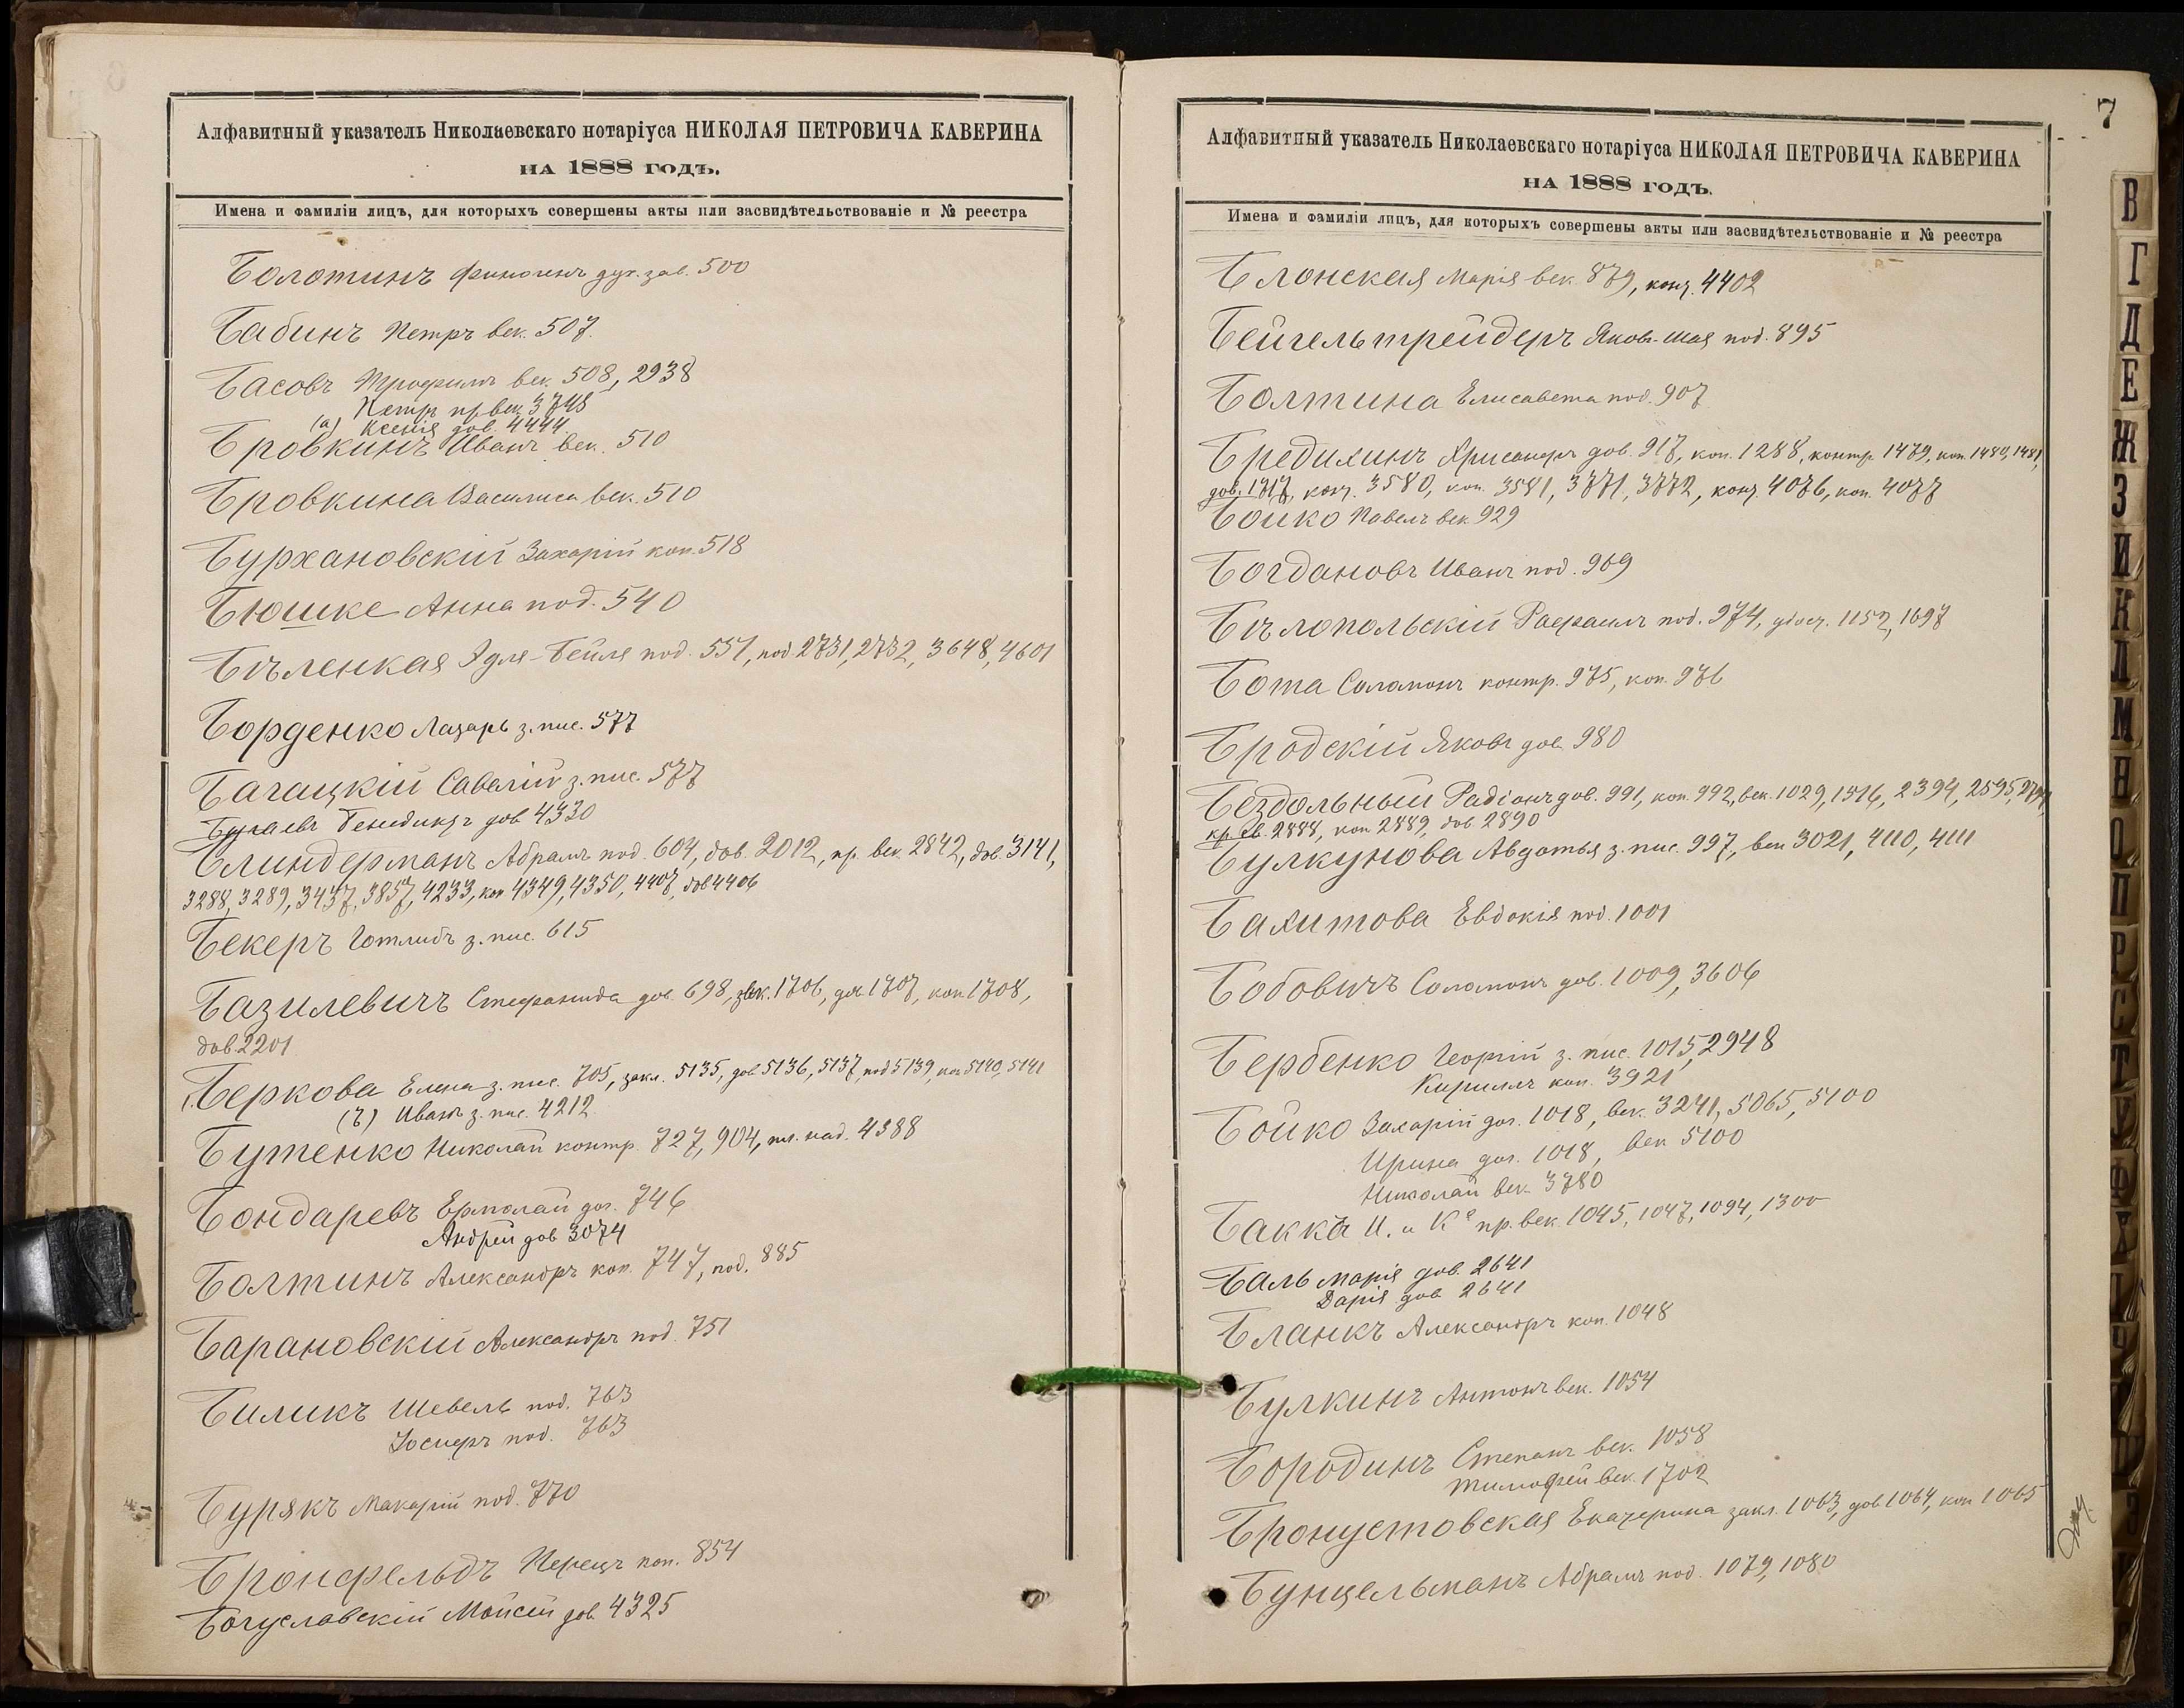 Алфавитный указатель Николаевскаго нотаріуса НИКОЛАЯ ПЕТРОВИЧА КАВЕРИНА
НА 1888 ГОДЪ.
Имена и фамиліи лицъ, для которыхъ совершены акты или засвидѣтельствованіе и № реестра
Болотинъ Финогенъ дух. зав. 500
Бабинъ Петръ век. 507.
Басовъ Трофимъ век. 508, 2938
Петръ пр. век. 3748
(а) Ксенія дов. 4444.
Бровкинъ Иванъ век. 510
Бровкина Василиса век. 510
Бурхановскій Захарій коп. 518
Бюшке Анна под. 540
Бѣленкая Эдля-Бейля под. 551, под 2731, 2732, 3648, 4601
Борденко Лазарь з. пис. 577
Багацкій Савелій з. пис. 577
Бугаевъ Бенедиктъ дов 4330
Блиндерманъ Абрамъ под. 604, дов. 2012, пр. век. 2842, дов 3141,
3288, 3289, 3437, 3857, 4233, коп 4349, 4350, 4407, дов 4406
Бекеръ Готлибъ з. пис. 615
Базилевичъ Стефанида дов. 698, век. 1706, дов. 1707, коп 1708,
дов. 2201
Беркова Елена з. пис. 705, закл. 5135, дов 5136, 5137, под 5139, коп 5140, 5141
(ъ) Иванъ з. пис. 4212
Бутенко Николай контр. 727, 904, 4388
Бондаревъ Ермолай дог. 746
Андрей дов 3074
Болтинъ Александръ коп. 747, под. 885
Барановскій Александръ под. 751
Биликъ Шевель под. 763
Іосифъ под. 763
Бурякъ Макарій под. 770
Бронфельдъ Перецъ коп. 854
Богуславскій Мойсей дов. 4325
7
Алфавитный указатель Николаевскаго нотаріуса НИКОЛАЯ ПЕТРОВИЧА КАВЕРИНА
НА 1888 ГОДЪ.
Имена и фамиліи лицъ, для которыхъ совершены акты или засвидѣтельствованіе и № реестра
Блонская Марія век. 879, 4402
Бейгельтрейдеръ Яковъ-Шая под. 895
Болтина Елисавета под. 907
Бредихинъ Хрисанфъ дов. 917, коп. 1288, контр. 1479, коп. 1480, 1481,
дов. 1717, 3580, коп. 3581, 3771, 3772, 4076, коп. 4077
Бойко Павелъ век. 929
Богдановъ Иванъ под. 969
Бѣлопольскій Рафаилъ под. 974, 1152, 1697
Бота Соломонъ контр. 975, коп. 976
Бродскій Яковъ дов. 980
Бездольный Радіонъ дов. 991, коп. 992, век. 1029, 1516, 2394, 2595,
2888, коп 2889, дов 2890
Булкунова Авдотья з. пис. 997, век 3021, 4110, 4111
Бахитова Евдокія под. 1001
Бобовичъ Соломонъ дов. 1009, 3606
Бербенко Георгій з. пис. 1015, 2948
Кириллъ коп. 3921
Бойко Захарій дог. 1018, век. 3241, 5065, 5100
Ирина дог. 1018, век 5100
Николай век. 3780
Бакка И. и Кº пр. век. 1045, 1047, 1094, 1300
Баль Марія дов. 2641
Дарія дов 2641
Бланкъ Александръ коп. 1048
Булкинъ Антонъ век. 1054
Бородинъ Степанъ век. 1058
Тимофей век. 1702
Бронустовская Екатерина закл. 1063, дов 1064, коп 1065
Бунцельманъ Абрамъ под. 1079, 1080
В
Г
Д
Е
Ж
З
И
К
Л
М
Н
О
П
Р
С
Т
У
Ф
Х